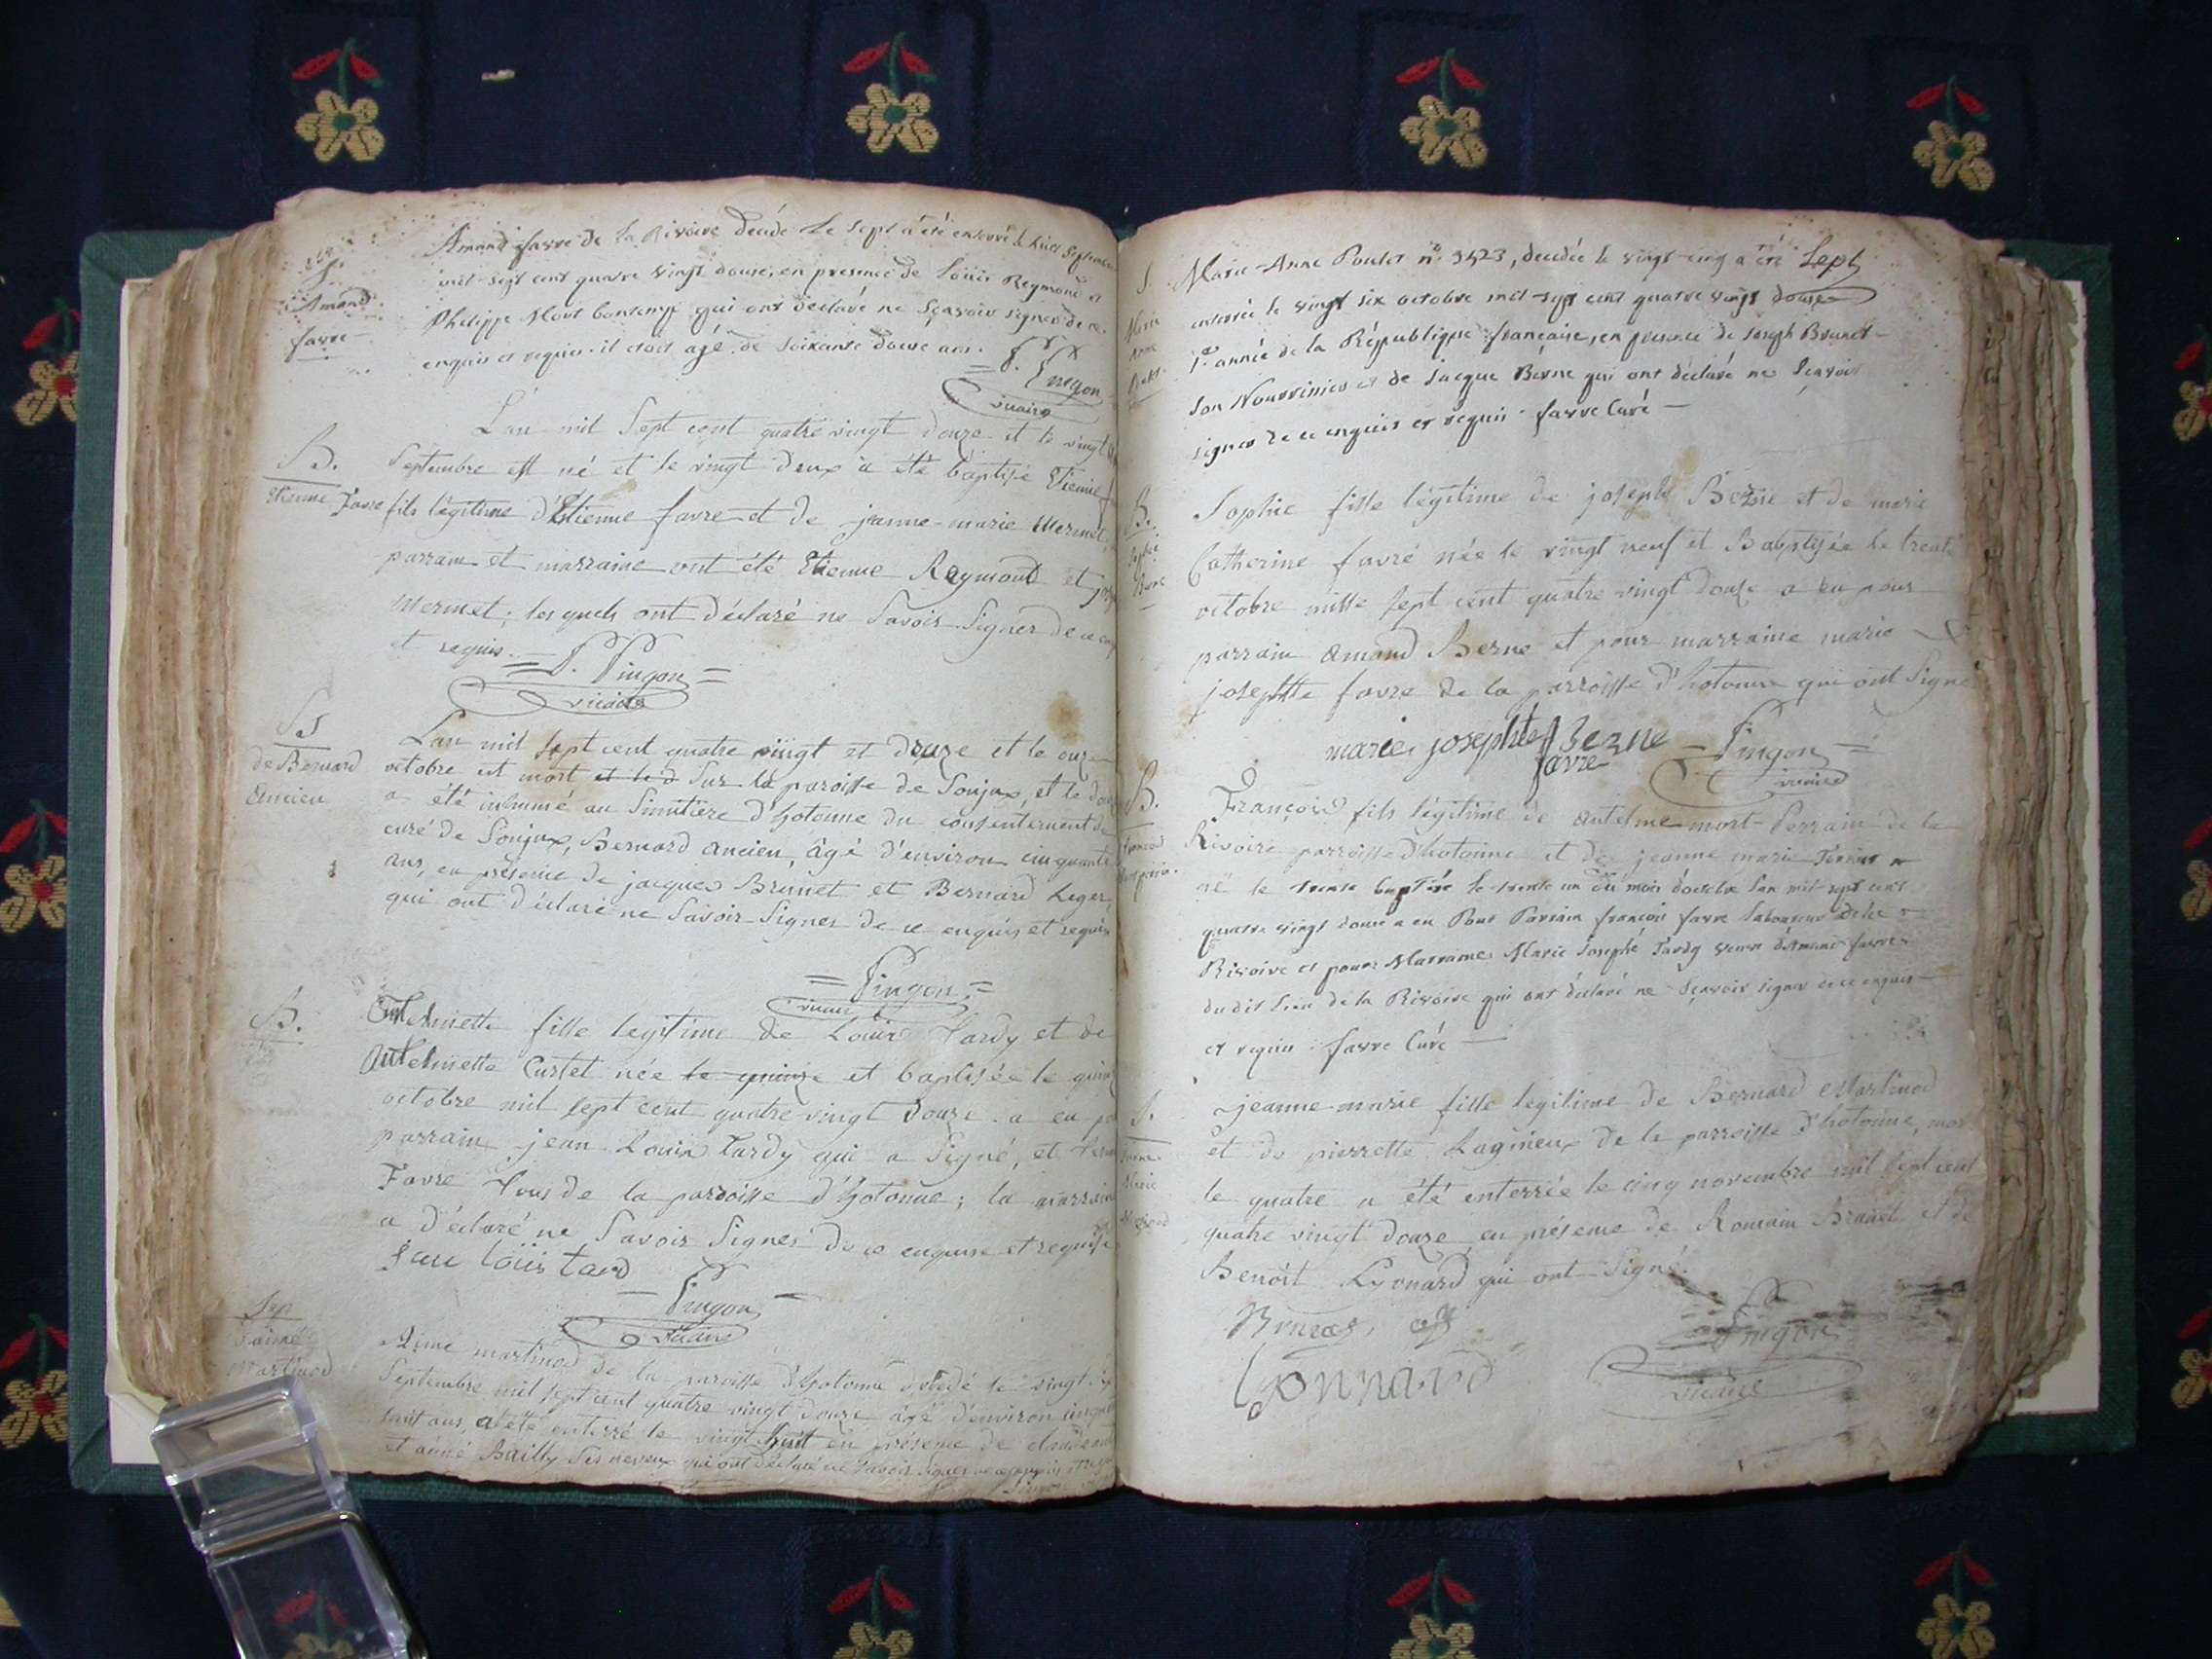 S.
Amand
favre
Amand favre de la Rivoire décédé le sept a été enterré le huit Septembre
mil-sept cent quatre vingt douse, en presence de Loüis Reymond et
Philippe Mort bontemps qui ont déclaré ne Sçavoir signer de ce
enquis et requis. il etoit agé de soixante douse ans.
P. Pingon
vicaire
B.
Etienne Favre
L'an mil Sept cent quatre vingt douze et le vingt
Septembre est né et le vingt deux a été baptisé Etienne
fils légitime d'Etienne favre et de jeanne-marie Mermet,
parrain et marraine ont été Etienne Reymond et
Mermet; lesquels ont déclaré ne Savoir Signer de ce
et requis.
P. Pingon
vicaire
de Bernard
Ancien
L'an mil sept cent quatre vingt et douze et le onze
octobre est mort et le d Sur la paroisse de Sonjux, et le
a été inhumé au Simitière d'hotonne du consentement de
curé de Sonjux, Bernard ancien, âgé d'environ cinquante
ans, en présence de jacques Brunet et Bernard Leger,
qui ont déclaré ne Savoir Signer de ce enquis et requis
Pingon
vicaire
B.
Antelmette fille legitime de Louis Tardy et de
Antelmette Curtet née le quinze et baptisée le
octobre mil sept cent quatre vingt douze a eu
parrain jean Louis Tardy qui a Signé, et
Favre tous de la paroisse d'hotonne; la marraine
a déclaré ne Savoir Signer de ce enquise et requise
jean loüis tard
Pingon
vicaire
Sep
d'aimé
Martinod
Aimé martinod de la paroisse d'hotonne décédé le vingt
Septembre mil sept cent quatre vingt douze âgé d'environ
huit ans, a été enterré le vingt huit en présence de
et aimé Bailly Ses neveux qui ont déclaré ne Savoir Signer
S.
Marie
Anne
Marie-Anne Poulet n.º 3423, décédée le vingt-cinq a été Sept
enterrée le vingt six octobre mil-sept cent quatre vingt douse
1.ere année de la République française, en presence de Joseph Brunet
son Nourricier et de Jacque Berne qui ont déclaré ne Sçavoir
signer de ce enquis et requis. favre Curé
B.
Sophie
Berne
Sophie fille légitime de joseph Berne et de marie
Catherine favre née le vingt neuf et Babptisée le trente
octobre mille sept cent quatre vingt douze a eu pour
parrain amand Berne et pour marraine marie
josephtte favre de la parroisse d'hotonne qui ont Signé
marie josephte Berne
favre
Pingon
vicaire
B.
François fils légitime de antelme mort-Perrain de la
Rivoire parroisse d'hotonne et de jeanne marie
né le trente baptisé le trente un du mois d'octobre l'an mil sept cent
quatre vingt douse a eu Pour Parrain françois favre laboureur de la
Rivoire et pour Marraine Marie Josephe Tardy veuve d'Amand favre
du dit lieu de la Rivoire qui ont déclaré ne Sçavoir signer de ce enquis
et requis. favre Curé
S.
Jeanne
Marie
jeanne-marie fille légitime de Bernard Martinod
et de pierrette Lagnieux de la parroisse d'hotonne,
le quatre a été enterrée le cinq novembre mil sept cent
quatre vingt douze en présence de Romain Brunet et de
Benoît Lyonard qui ont Signé.
Lyonnard
Pingon
vicaire